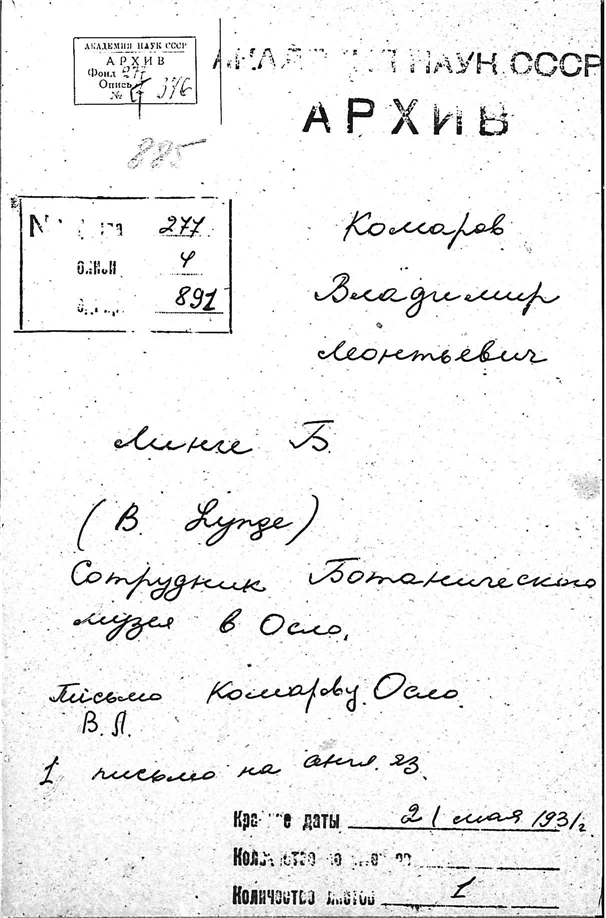 АКАДЕМИЯ НАУК СССР
АРХИВ
Фонд 277
Опись 4
№ 376
АКАДЕМИЯ НАУК СССР
АРХИВ
885
№ фонда 277
описи 4
ед. хр. 891
Комаров
Владимир
Леонтьевич
Линге Б.
(B. Lynge)
Сотрудник Ботанического
музея в Осло.
Письмо Комарву. Осло.
В.Л.
1 письмо на англ. яз.
Крайние даты 21 мая 1931 г.
Количество
Количество листов 1